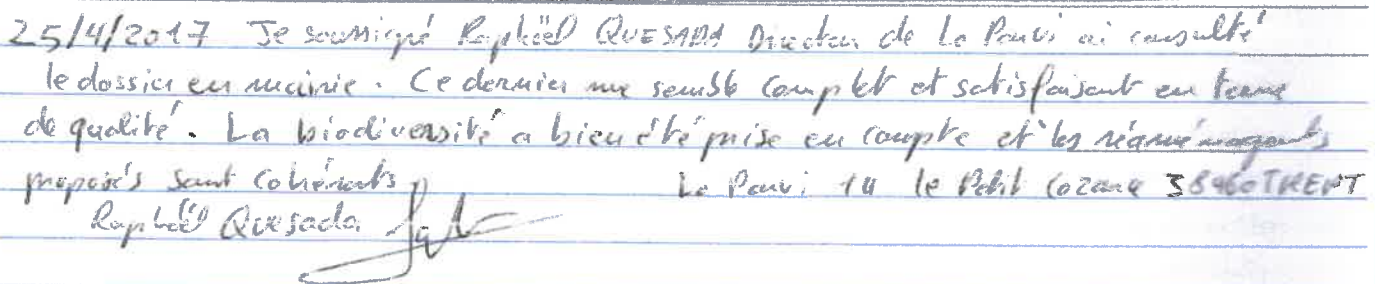 25/4/2017 Je soussigné Raphaël QUESADA Directeur de Lo Parvi ai consulté
le dossier en mairie. Ce dernier me semble complet et satisfaisant en terme
de qualité. La biodiversité a bien été prise en compte et les réaménagements
proposés sont cohérents Lo Parvi 14 le Petit Cozance 38460 TREPT
Raphaël Quesada